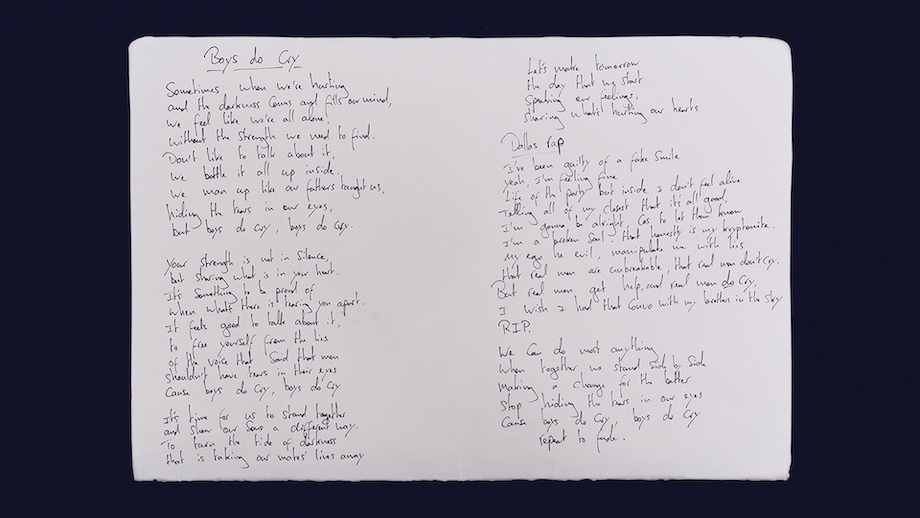 Boys do Cry
Sometimes when we're hurting
and the darkness comes and fills our mind,
we feel like we're all alone,
without the strength we need to find.
Don't like to talk about it,
we bottle it all up inside.
We man up like our fathers taught us,
hiding the tears in our eyes,
but boys do cry, boys do cry.
Your strength is not in silence,
but sharing what is in your heart.
It's something to be proud of
when what's there is tearing you apart.
It feels good to talk about it,
to free yourself from the lies
of the voice that said that men
shouldn't have tears in their eyes
Cause boys do Cry, boys do Cry
It's time for us to stand together
and show our sons a different way.
To turn the tide of darkness
that is taking our mates' lives away
Let's make tomorrow
the day that we start
Speaking our feelings,
sharing what's hurting our hearts
Dallas rap
I've been guilty of a fake smile
yeah, I'm feeling fine
Life of the party but inside I don't feel alive
Telling all of my closest that it's all good,
I'm gonna be alright, Cos to let them know
I'm a broken soul, that honesty is my kryptonite.
My ego is evil, manipulate me with lies
that real men are unbreakable, that real men don't Cry.
But real men get help, and real men do Cry,
I wish I had that Convo with my brother in the sky
R.I.P.
We can do most anything
When together we stand side by side
Making a change for the better
Stop hiding the tears in our eyes
Cause boys do Cry, boys do Cry
repeat to fade.